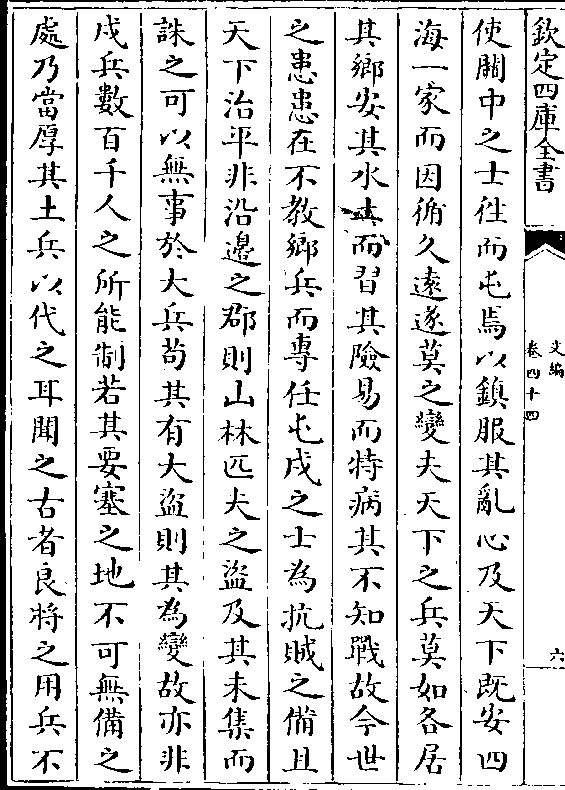 欽定四庫全書
文編
卷四十四
六
使關中之士徃而屯焉以鎮服其亂心及天下既安四
海一家而因循久遠遂莫之變夫天下之兵莫如各居
其鄉安其水土而習其險易而特病其不知戰故今世
之患患在不教鄉兵而專任屯戍之士為抗賊之備且
天下治平非沿邊之郡則山林匹夫之盜及其未集而
誅之可以無事於大兵苟其有大盜則其為變故亦非
戍兵數百千人之所能制若其要塞之地不可無備之
處乃當厚其土兵以代之耳聞之古者良將之用兵不